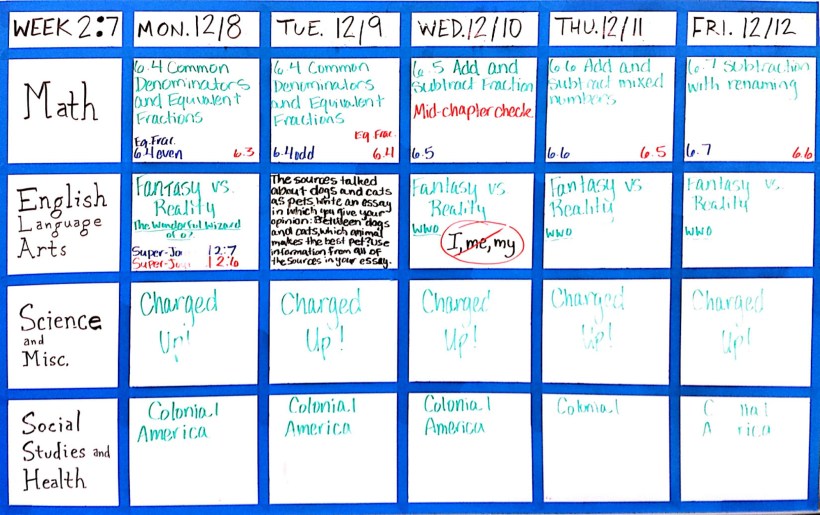 WEEK 2:7
MON. 12/8
TUE. 12/9
WED. 12/10
THU. 12/11
FRI. 12/12
Math
6.4 Common
Denominators
and Equivalent
Fractions
Eq. Frac.
6.4 even 6.3
6.4 Common
Denominators
and Equivalent
Fractions
Eq. Frac.
6.4 odd 6.4
6.5 Add and
Subtract Fraction
Mid-chapter check
6.5
6.6 Add and
subtract mixed
numbers
6.6 6.5
6.7 Subtraction
with renaming
6.7 6.6
English
Language
Arts
Fantasy vs.
Reality
The Wonderful Wizard
of Oz
Super-Jo 12:7
Super-Jo 12:6
The sources talked
about dogs and cats
as pets. Write an essay
in which you give your
opinion: Between dogs
and cats, which animal
makes the best pet? Use
information from all of
the sources in your essay.
Fantasy vs
Reality
WWO
I, me, my
Fantasy vs
Reality
WWO
Fantasy vs.
Reality
WWO
Science
and
Misc.
Charged
Up!
Charged
Up!
Charged
Up!
Charged
Up!
Charged
Up!
Social
Studies and
Health
Colonial
America
Colonial
America
Colonial
America
Colonial